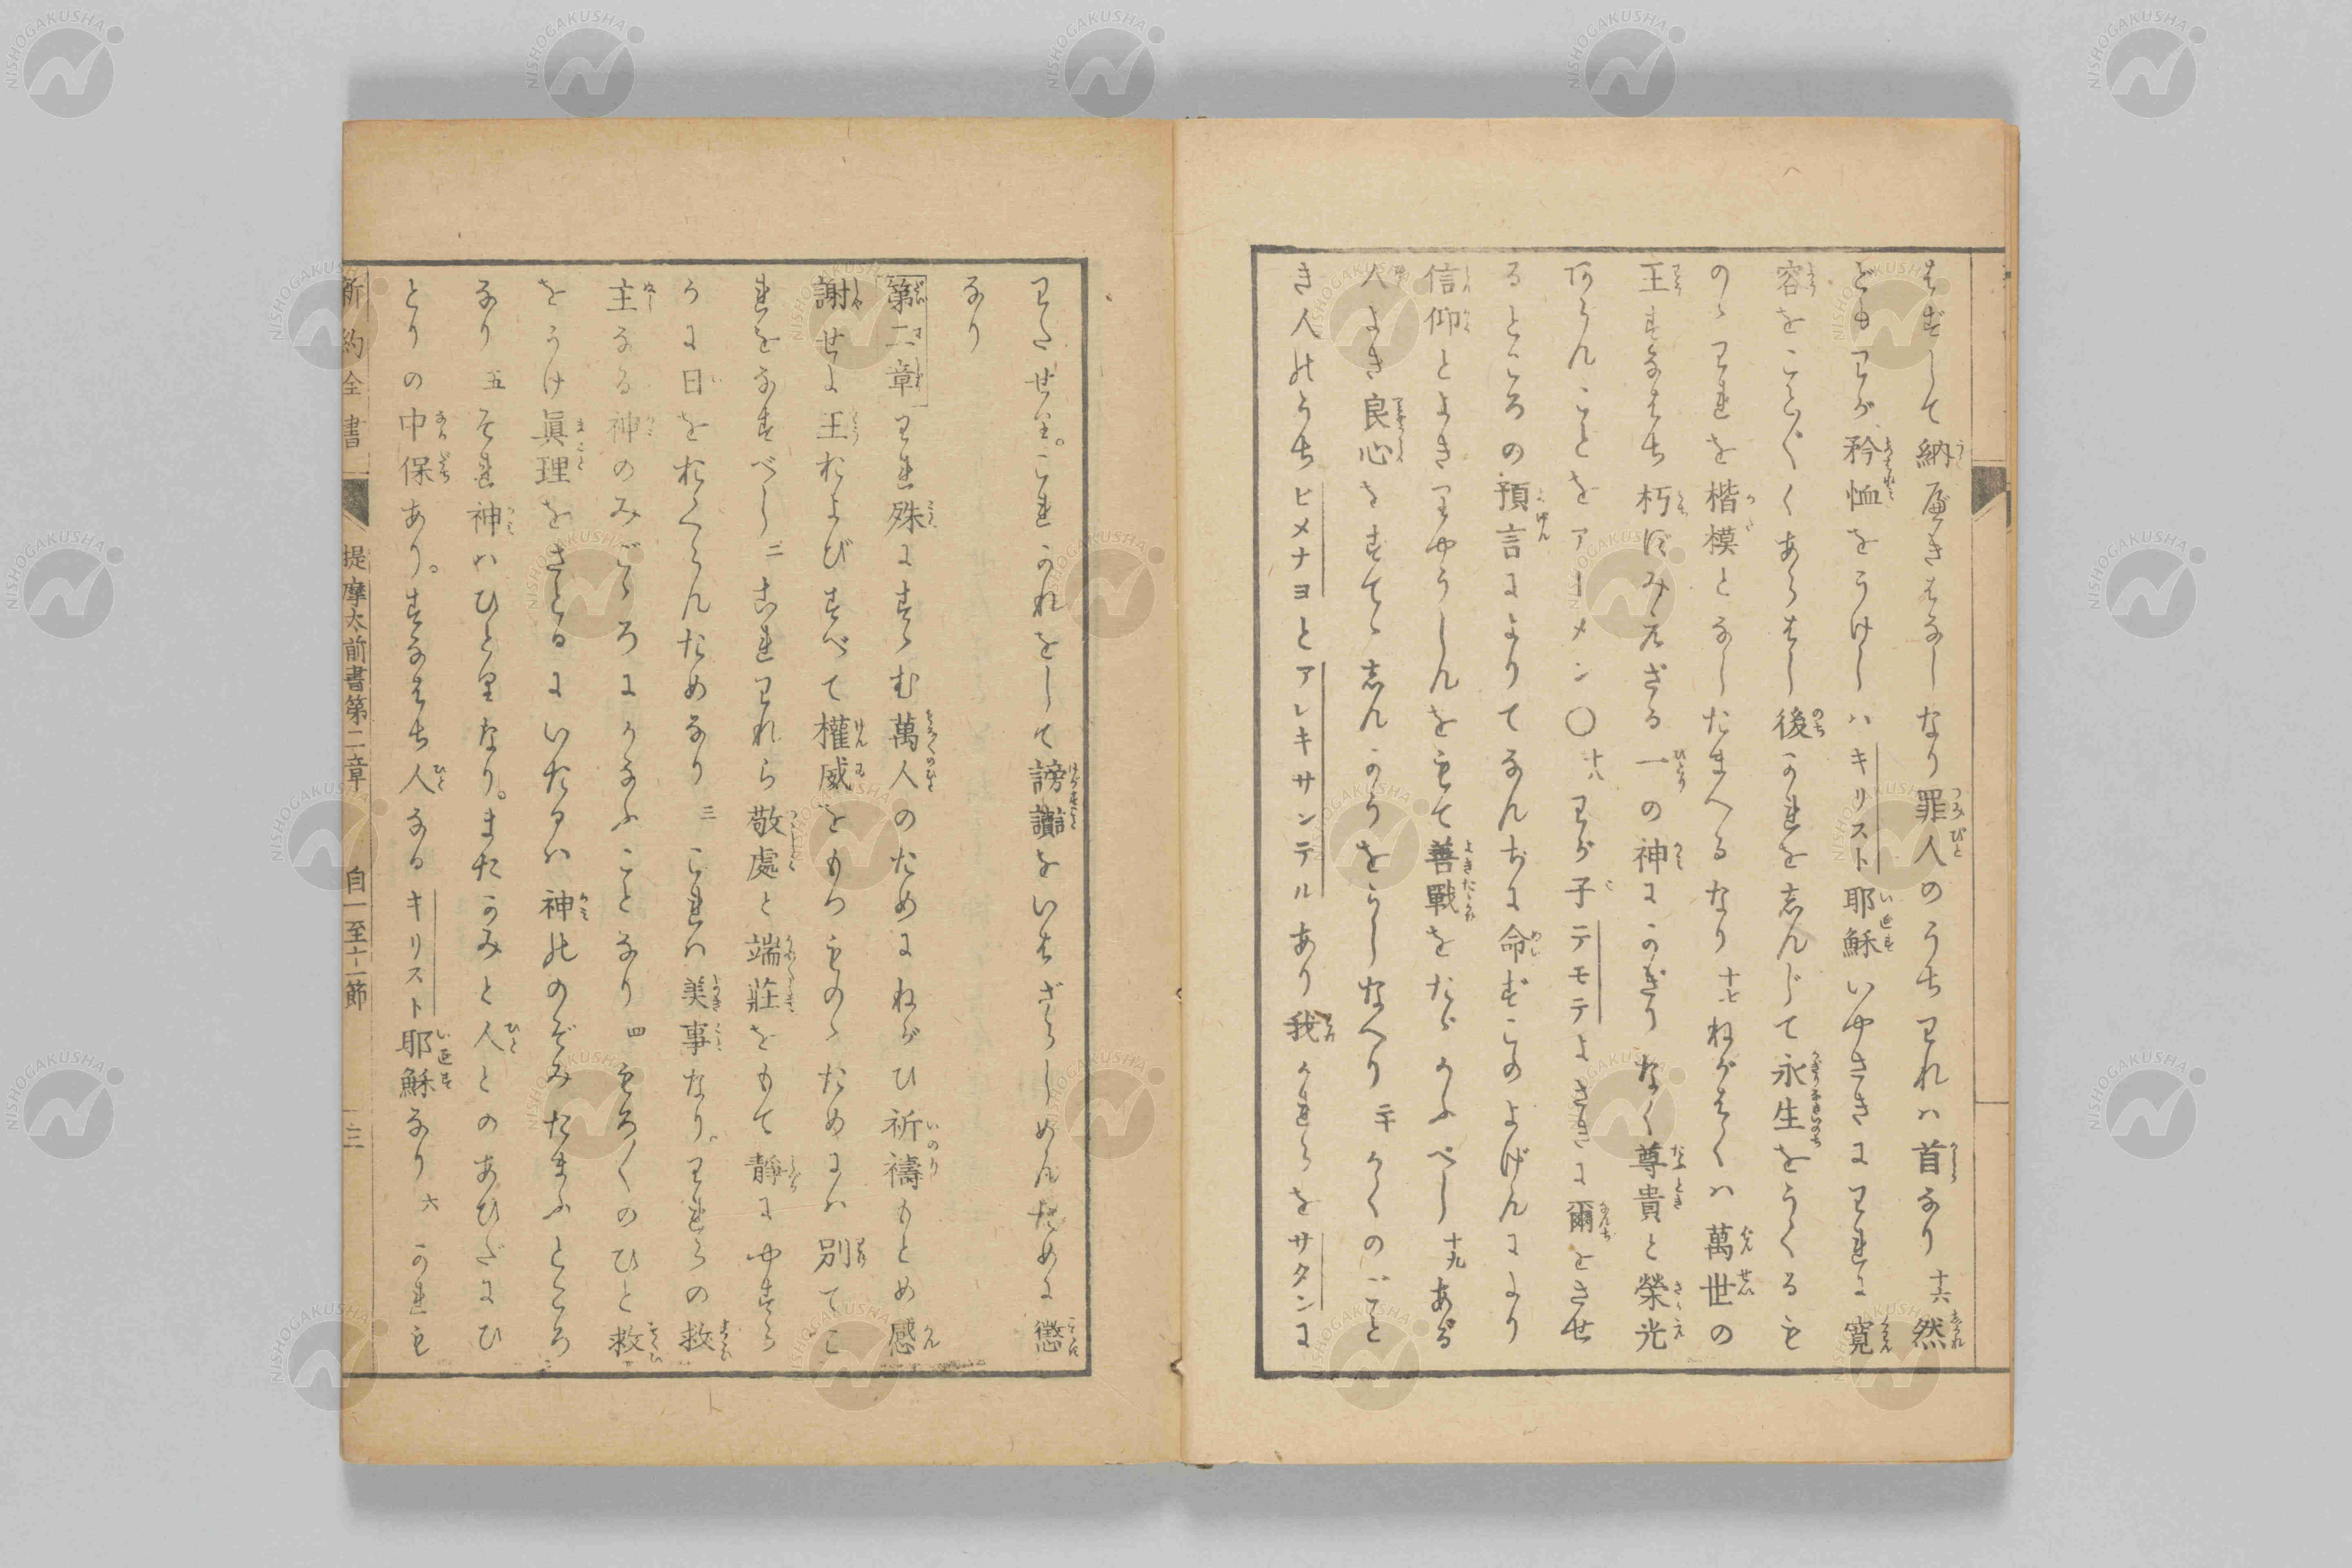 はずして納べきはなしなり罪人のうちわれハ首なり十六然
ども わが矜恤をうけしハキリスト耶穌いやさきにわれに寛
容をことごとくあらはし後かれをしんじて永生をうくるも
のゝわれを楷模となしたまへるなり十七ねがはくハ萬世の
王すなはち朽ずみえざる一の神にかぎりなく尊貴と榮光
あらんことをアーメン〇十八わが子テモテよさきに爾をさせ
るところの預言によりてなんぢに命ずこのよげんにより
信仰とよきりやうしんをもて善戰をたゝかふべし十九ある
人よき良心をすてゝしんかうをうしなへり二十かくのごと
き人のうちヒメナヨとアレキサンデルあり我かれらをサタンに
わたせり。これかれをして謗讟をいはざらしめんために懲
なり
第二章われ殊にすゝむ萬人のためにねがひ祈禱もとめ感
謝せよ王およびすべて權威をもつものゝためにハ別てこ
れをなすべし二これわれら敬虔と端莊をもて靜にやすら
かに日をおくらんためなり三これハ美事なり。われらの救
主なる神のみごゝろにかなふことなり四もろ〳〵のひと救
をうけ眞理をさとるにいたるハ神のゝぞみたまふところ
なり五それ神ハひとりなり。またかみと人とのあひだにひ
とりの中保あり。すなはち人なるキリスト耶穌なり六かれも
新約全書 提摩太前書第二章 自一至十二節 三